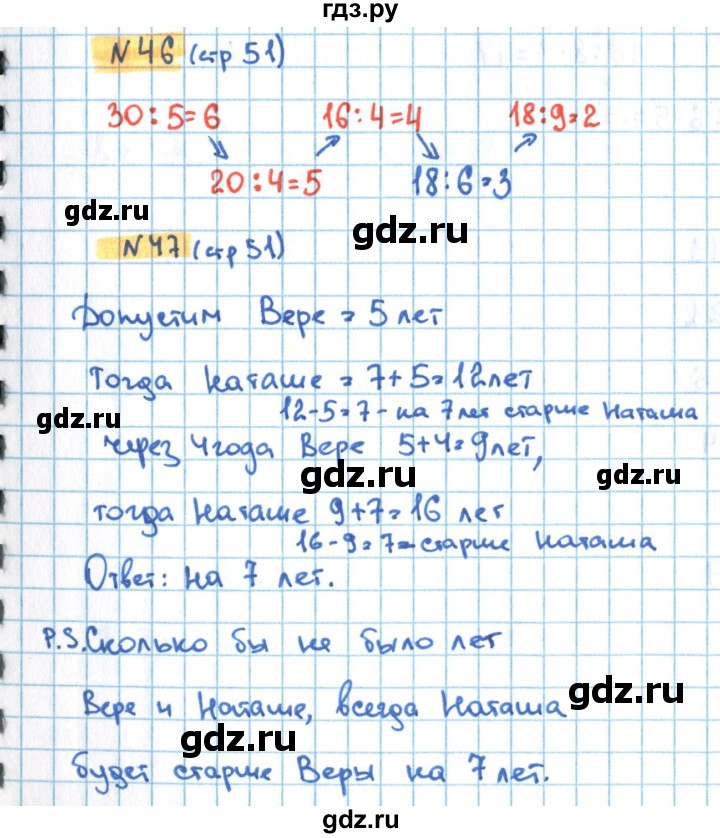 гдз.ру
N 46 (стр 51)
30 : 5 = 6 16 : 4 = 4 18 : 9 = 2
20 : 4 = 5 18 : 6 = 3
gdz.ru
gdz.ru
N 47 (стр 51)
Допустим Вере = 5 лет
Тогда Наташе = 7 + 5 = 12 лет
gdz.ru
12 - 5 = 7 - на 7 лет старше Наташа
через 4 года Вере 5 + 4 = 9 лет,
gdz.ru
gdz.ru
тогда Наташе 9 + 7 = 16 лет
16 - 9 = 7 = старше Наташа
gdz.ru
Ответ: на 7 лет.
P.S. Сколько бы не было лет
gdz.ru
Вере и Наташе, всегда Наташа
gdz.ru
будет старше Веры на 7 лет.
gdz.ru